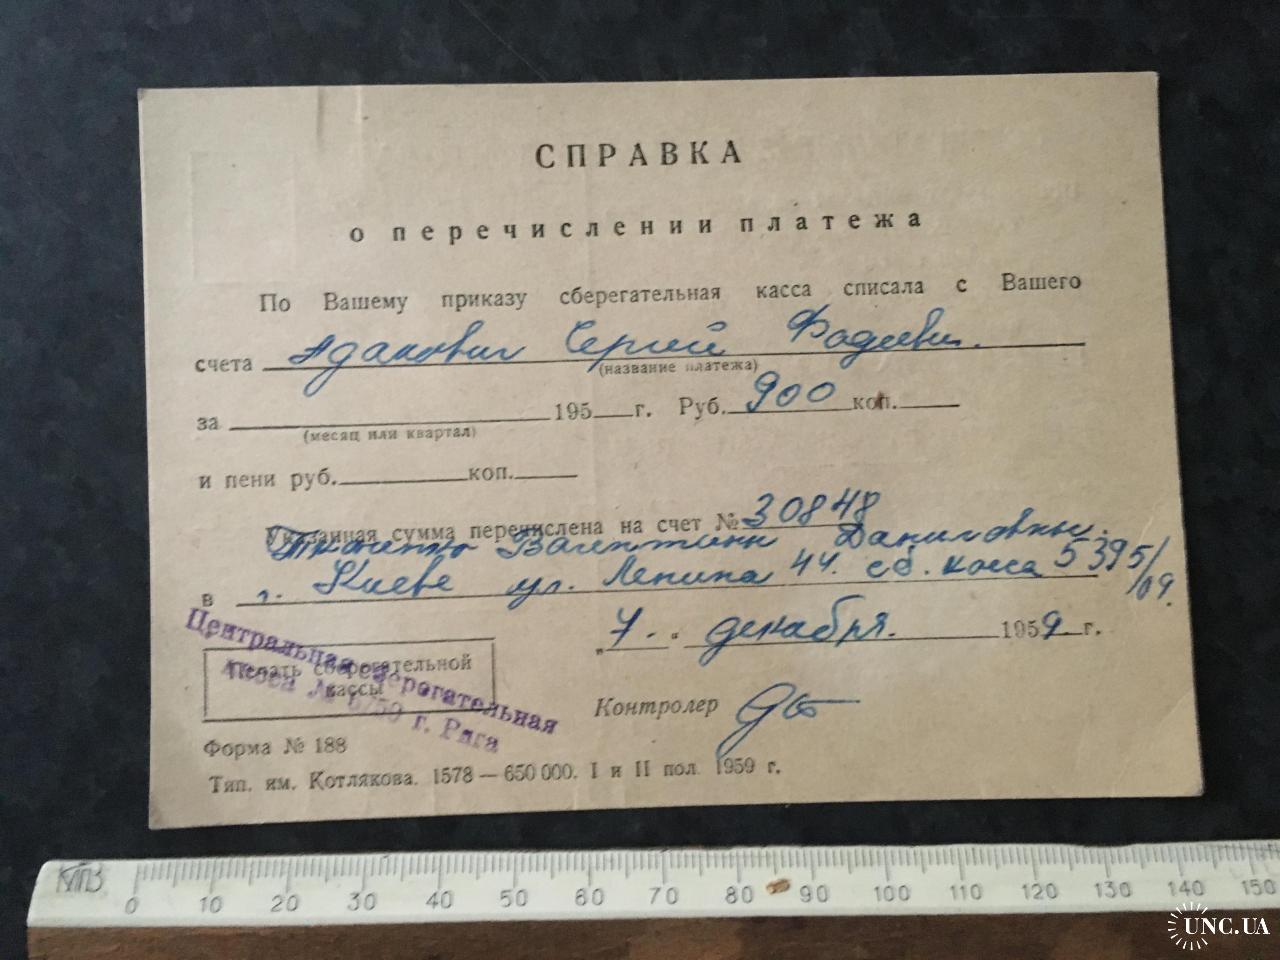 СПРАВКА
о перечислении платежа
По Вашему приказу сберегательная касса списала с Вашего
счета Адамович Сергей Фадеевич.
(название платежа)
за 195 г. Руб. 900 коп.
(месяц или квартал)
и пени руб. коп.
Указанная сумма перечислена на счет № 30848
Валентины Даниловны.
в г. Киеве ул. Ленина 44. сб. касса 5395/
109.
„7." декабря. 1959 г.
Центральная сберегательная
касса № 6759 г. Рига
Печать сберегательной
кассы
Контролер
Форма № 188
Тип. им. Котлякова. 1578—650 000. I и II пол. 1959 г.
МПВ
0 10 20 30 40 50 60 70 80 90 100 110 120 130 140 150
UNC.UA